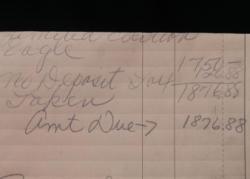 Edition
Eagle 1750-
126.88
No Deposit 1876.88
Taken
Amt Due→ 1876.88